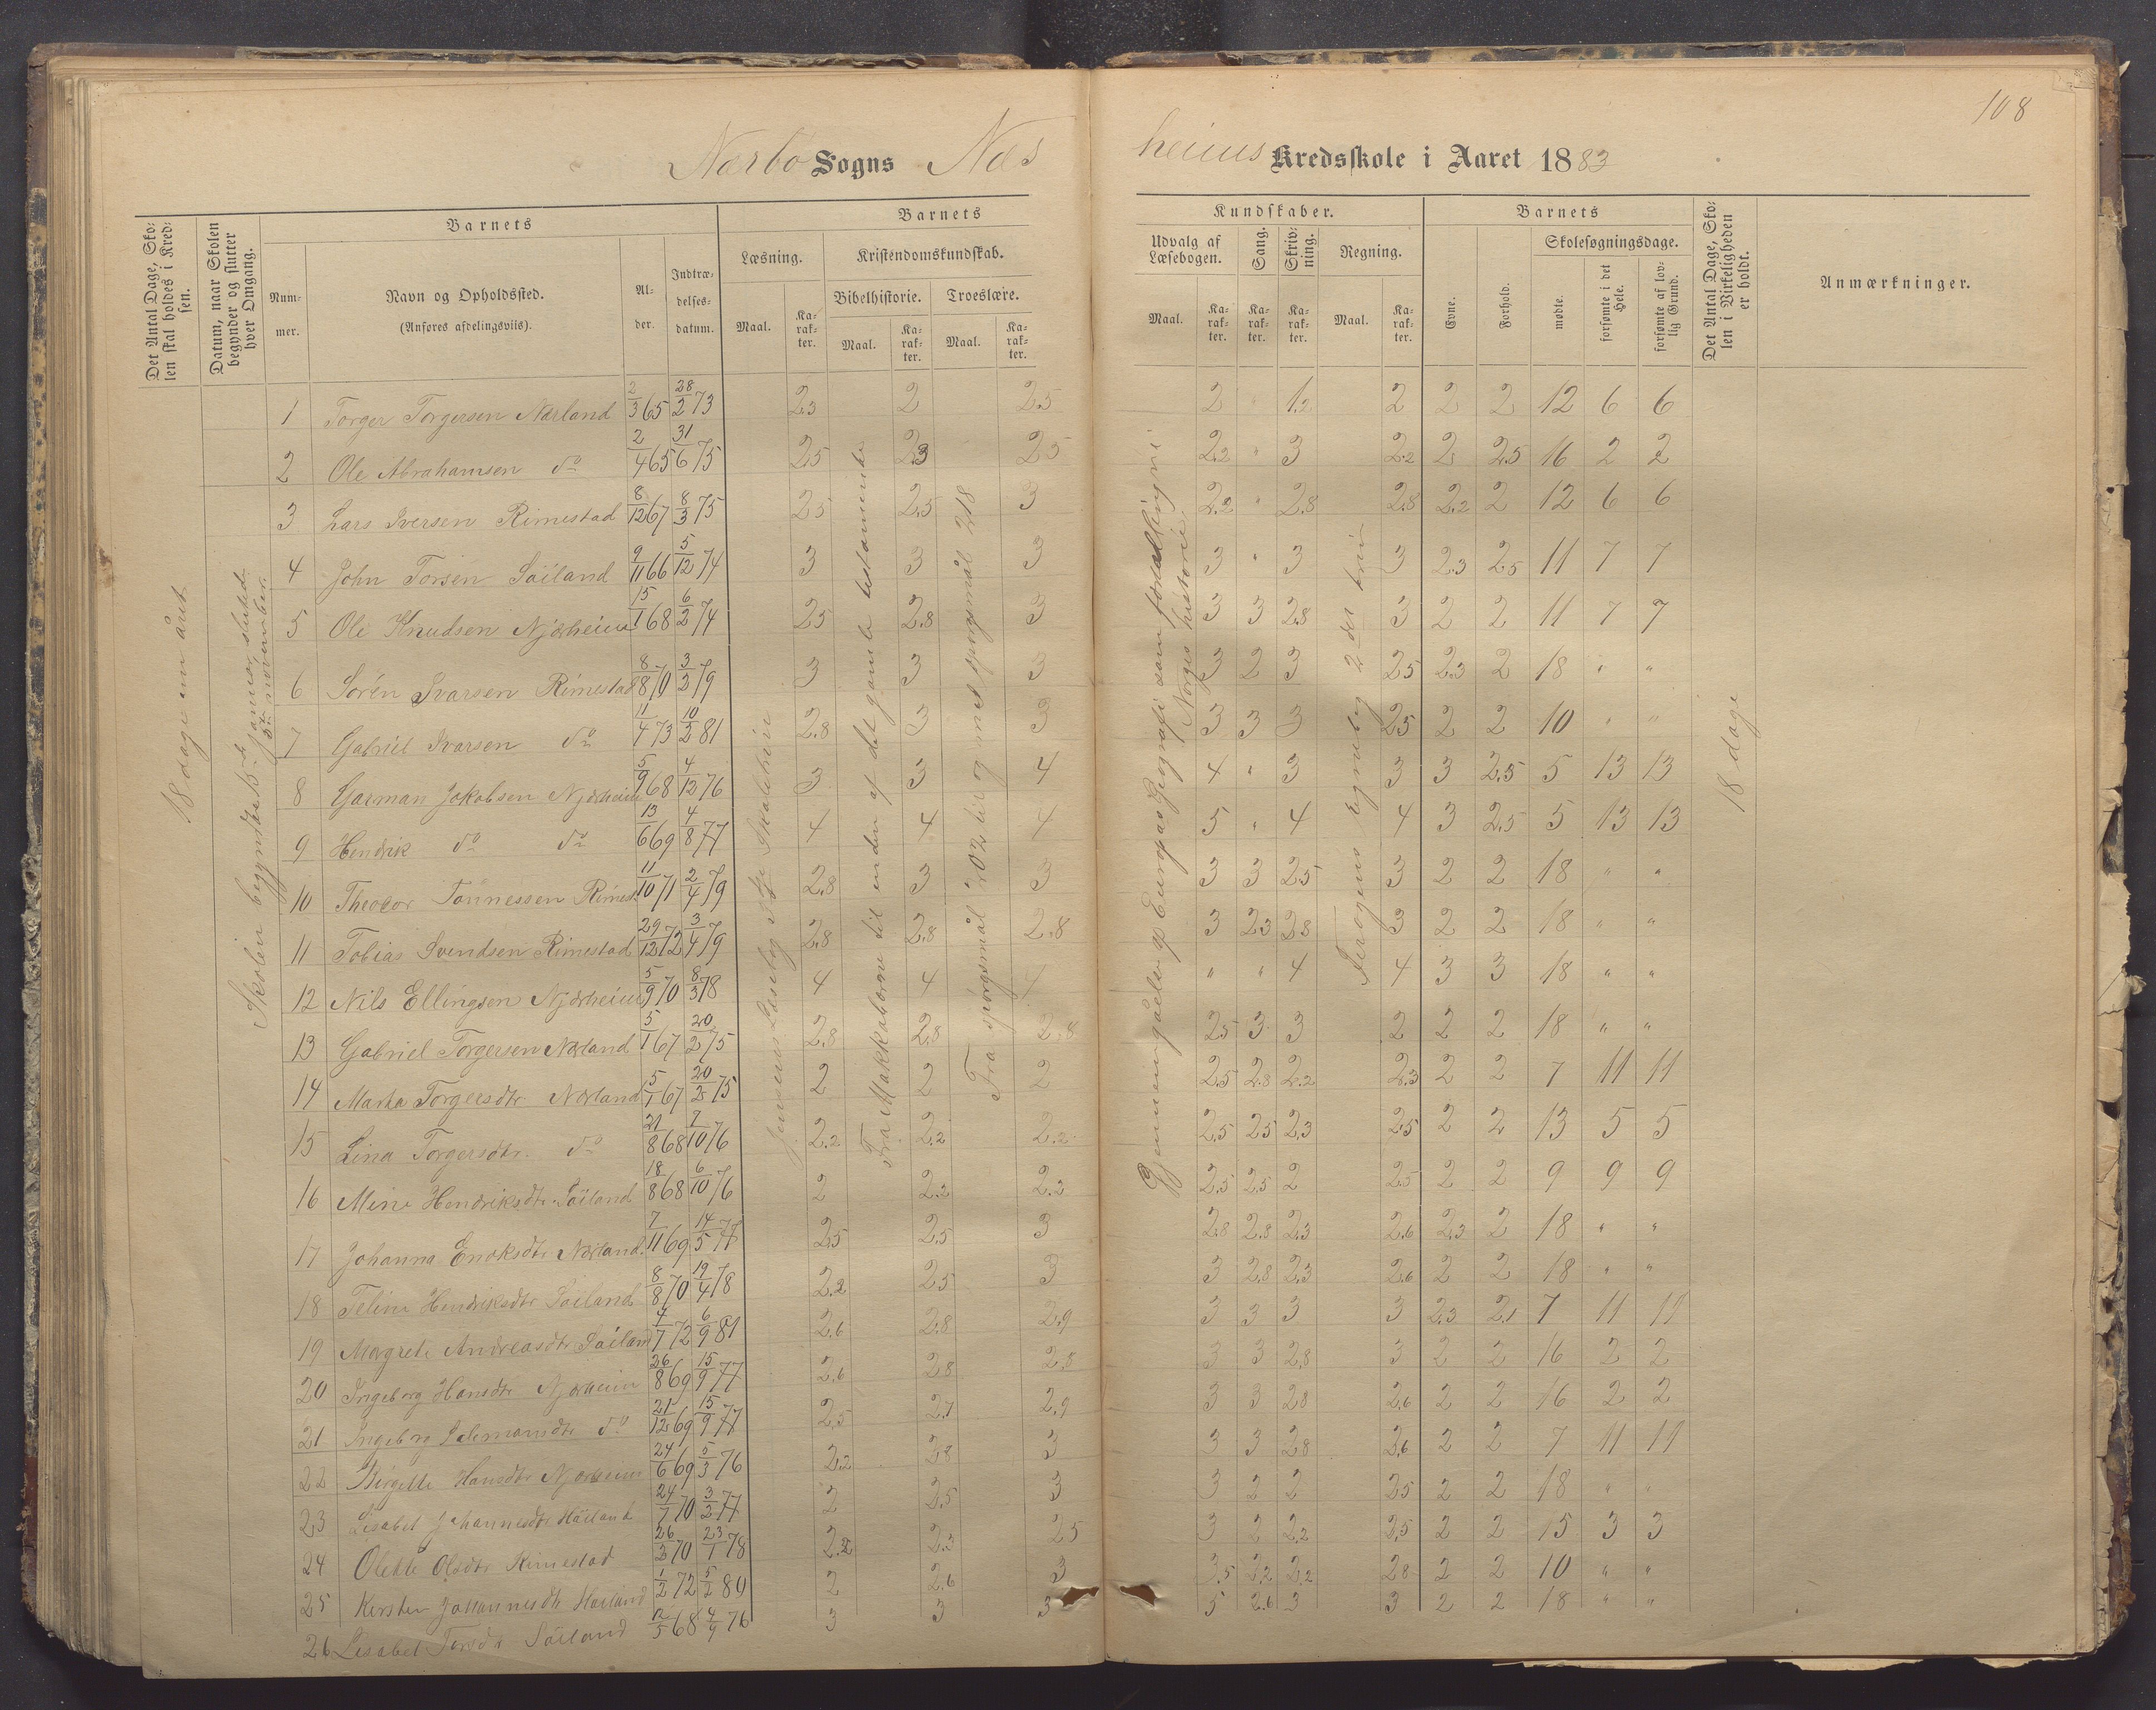 108
Nærbo Sogns Næs
heims Kredsskole i Aaret 1883
Det Antal Dage, Sko-
len skal holdes i Kred-
sen.
Datum, naar Skolen
begynder og slutter
hver Omgang.
Barnets
Num-
mer.
Navn og Opholdssted.
(Anføres afdelingsviis).
Al-
der.
Indtræ-
delses-
datum.
Barnets
Læsning.
Kristendomskundskab.
Bibelhistorie.
Troeslære.
Maal.
Ka-
rak-
ter.
Maal.
Ka-
rak-
ter.
Maal.
Ka-
rak-
ter.
Kundskaber.
Udvalg af
Læsebogen.
Sang.
Skriv-
ning.
Regning.
Maal.
Ka-
rak-
ter.
Ka-
rak-
ter.
Ka-
rak-
ter.
Maal.
Ka-
rak-
ter.
Barnets
Evne.
Forhold.
Skolesøgningsdage.
mødte.
forsømte i det
Hele.
forsømte af lov-
lig Grund.
Det Antal Dage, Sko-
len i Virkeligheden
er holdt.
Anmærkninger.
18 dage om året
18 dage
1 Torger Torgersen Nærland 2/3 65 28/2 73 2.3 2 2.5 2 " 1.2 2 2 2 12 6 6
2 Ole Abrahamsen do 2/4 65 31/6 75 2.5 2.3 2.5 2.2 " 3 2.2 2 2.5 16 2 2
3 Lars Iversen Rimestad 8/12 67 8/3 75 2.5 2.5 3 2.2 " 2.8 2.8 2.2 2 12 6 6
4 John Torsen Såiland 9/11 66 5/12 74 3 3 3 3 " 3 3 2.3 2.5 11 7 7
5 Ole Knudsen Njærheim 15/1 68 6/2 74 2.5 2.8 3 3 3 2.8 3 2 2 11 7 7
6 Sørén Ivarsen Rimestad 8/8 70 3/3 79 3 3 3 3 2 3 2.5 2.3 2 18 " "
7 Gabriel Ivarsen do 11/4 73 10/3 81 2.8 3 3 3 3 3 2.5 2 2 10 " "
8 Garman Jakobsen Njærheim 5/9 68 4/12 76 3 3 4 4 " 3 3 3 2.5 5 13 13
9 Hendrik do do 13/6 69 4/8 77 4 4 4 5 " 4 4 3 2.5 5 13 13
10 Theodor Tönnessen Rimes. 11/10 71 2/4 79 2.8 3 3 3 3 2.5 3 2 2 18 " "
11 Tobias Svendsen Rimestad 29/12 72 3/4 79 2.8 2.8 2.8 3 2.3 2.8 3 2 2 18 " "
12 Nils Ellingsen Njærheim 5/9 70 8/3 78 4 4 4 " " 4 4 3 3 18 " "
13 Gabriel Torgersen Nærland 5/1 67 20/2 75 2.8 2.8 2.8 2.5 3 3 2 2 2 18 " "
14 Marta Torgersdtr Nærland 5/1 67 20/2 75 2 2 2 2.5 2.8 2.2 2.3 2 2 7 11 11
15 Lina Torgersdtr. do 21/8 68 7/10 76 2.2 2.2 2.2 2.5 2.5 2.3 2.5 2 2 13 5 5
16 Mine Hendriksdtr Såiland 18/8 68 6/10 76 2 2.2 2.2 2.5 2.5 2 2.5 2 2 9 9 9
17 Johanna Enoksdtr Nærland. 7/11 69 14/5 77 2.5 2.5 3 2.8 2.8 2.3 2.6 2.3 2 18 " "
18 Teline Hendriksdtr Såiland 8/8 70 19/4 78 2.2 2.5 3 3 2.8 2.3 2.6 2 2 18 " "
19 Margrete Andreasdtr Såiland 4/7 72 6/9 81 2.6 2.8 2.9 3 3 3 3 2.3 2.1 7 11 11
20 Ingeborg Hansdtr Njærheim 26/8 69 15/9 77 2.6 2.8 2.8 3 3 2.8 3 2 2 16 2 2
21 Ingeborg Salemonsdtr do 21/12 69 15/9 77 2.5 2.7 2.9 3 3 2.8 2.6 2 2 16 2 2
22 Birgitte Hansdtr Njærheim 24/6 69 5/3 76 2.2 2.8 3 3 3 2.8 2.6 2 2 7 11 11
23 Lisabet Johannesdtr Håiland 24/7 70 3/2 77 2 2.5 3 3 2 2 2.5 2 2 18 " "
24 Olette Olsdtr Rimestad 26/3 70 23/1 78 2.2 2.3 2.5 3 2 2.2 2.5 2 2 15 3 3
25 Kirsten Johannesdtr Håiland 1/2 72 5/2 80 2 2.6 3 3.5 2.2 2.2 2.8 2 2 10 " "
26 Lisabet Torsdtr Såiland 12/5 68 4/9 76 3 3 3 5 2.6 3 3 2 2 18 " "
Skolen begyndte 15de januar, sluttede
5te november.
Jensens Læsebog
Fra Makkabæerne til enden af det gamle testamente
Fra spørgsmål 202 til og med spørgsmål 218
Gjennemgåelse af Europas Geografi som fortælling i
Norges historie.